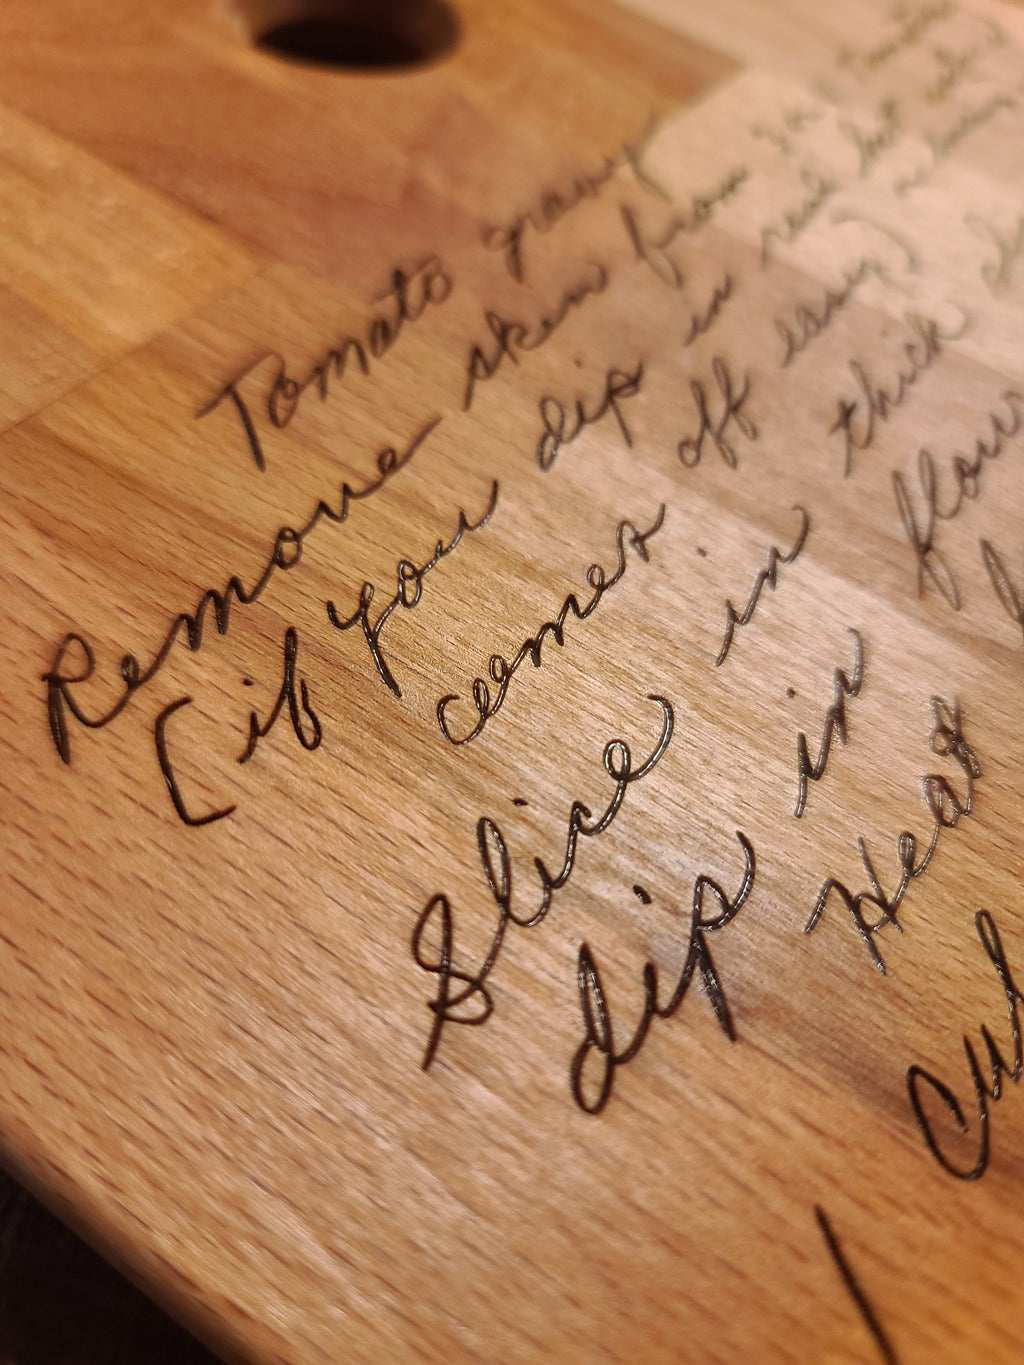 Tomato gravy
Remove skin from
[if you dip in real hot
comes off easy)
Slice in thick
dip in flour
Heat